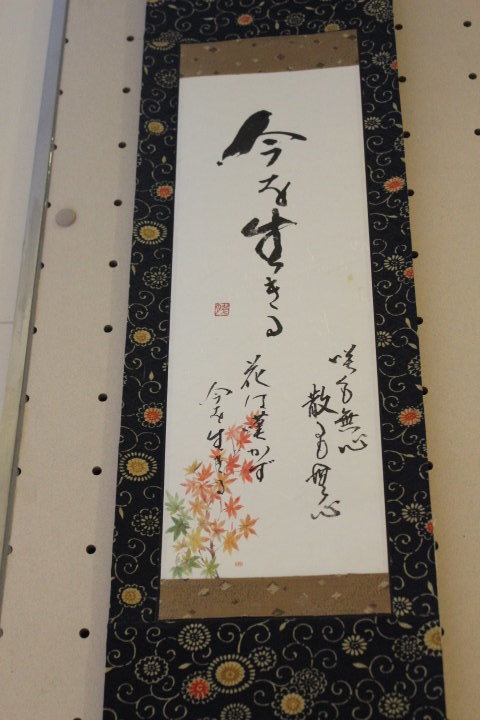 今を生きる
咲も無心
散るも無心
花は嘆かず
今を生きる